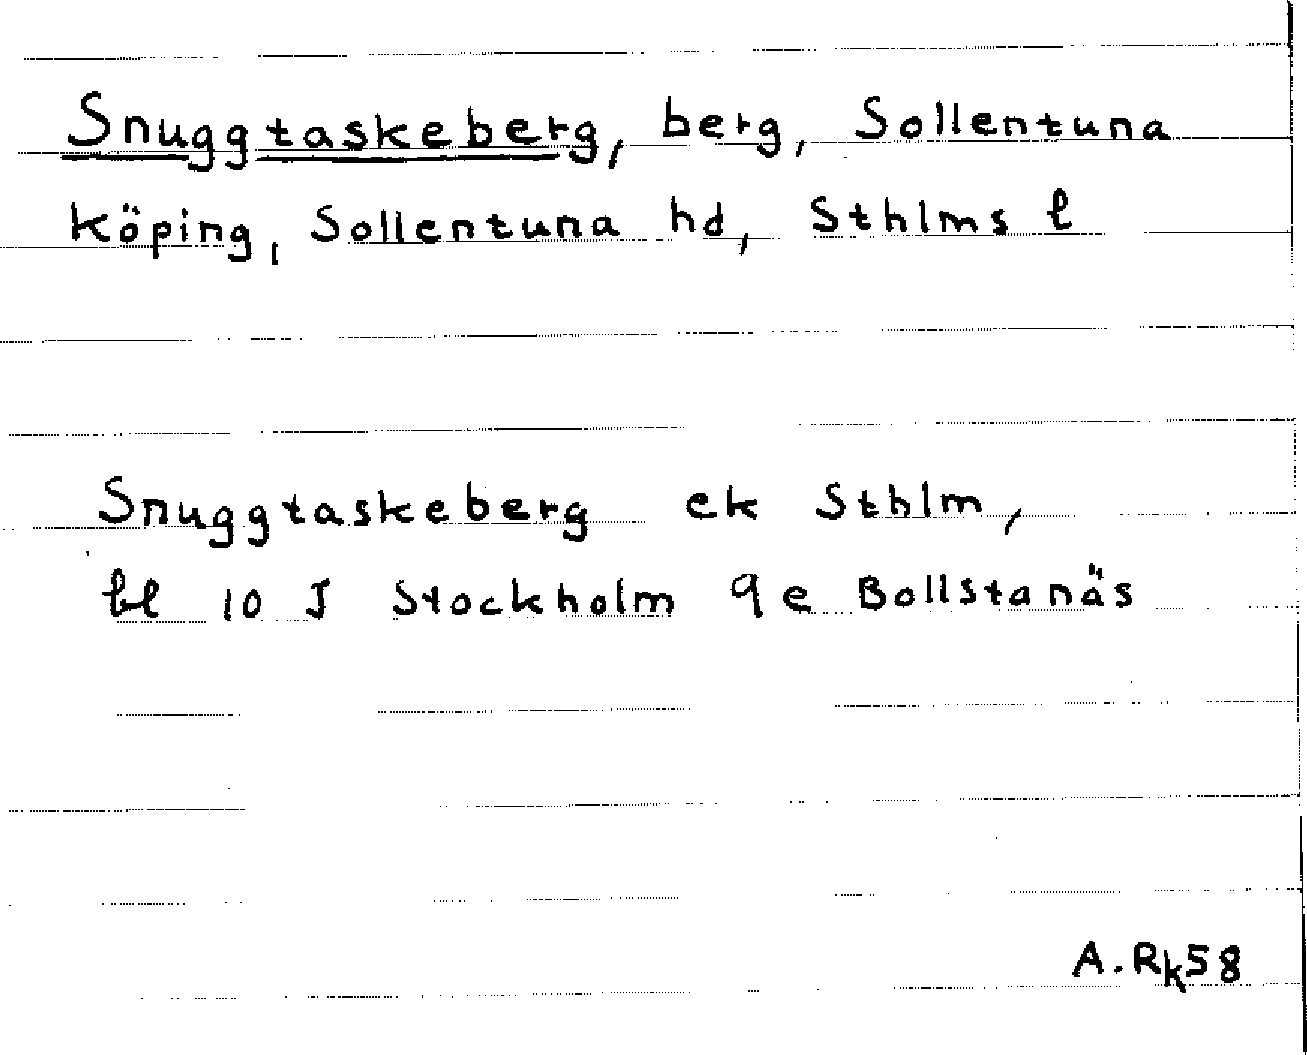 Snuggtaskeberg, berg, Sollentuna
köping, Sollentuna hd, Sthlms l
Snuggtaskeberg ek Sthlm,
bl 10 J Stockholm 9e Bollstanäs
A.Rk58